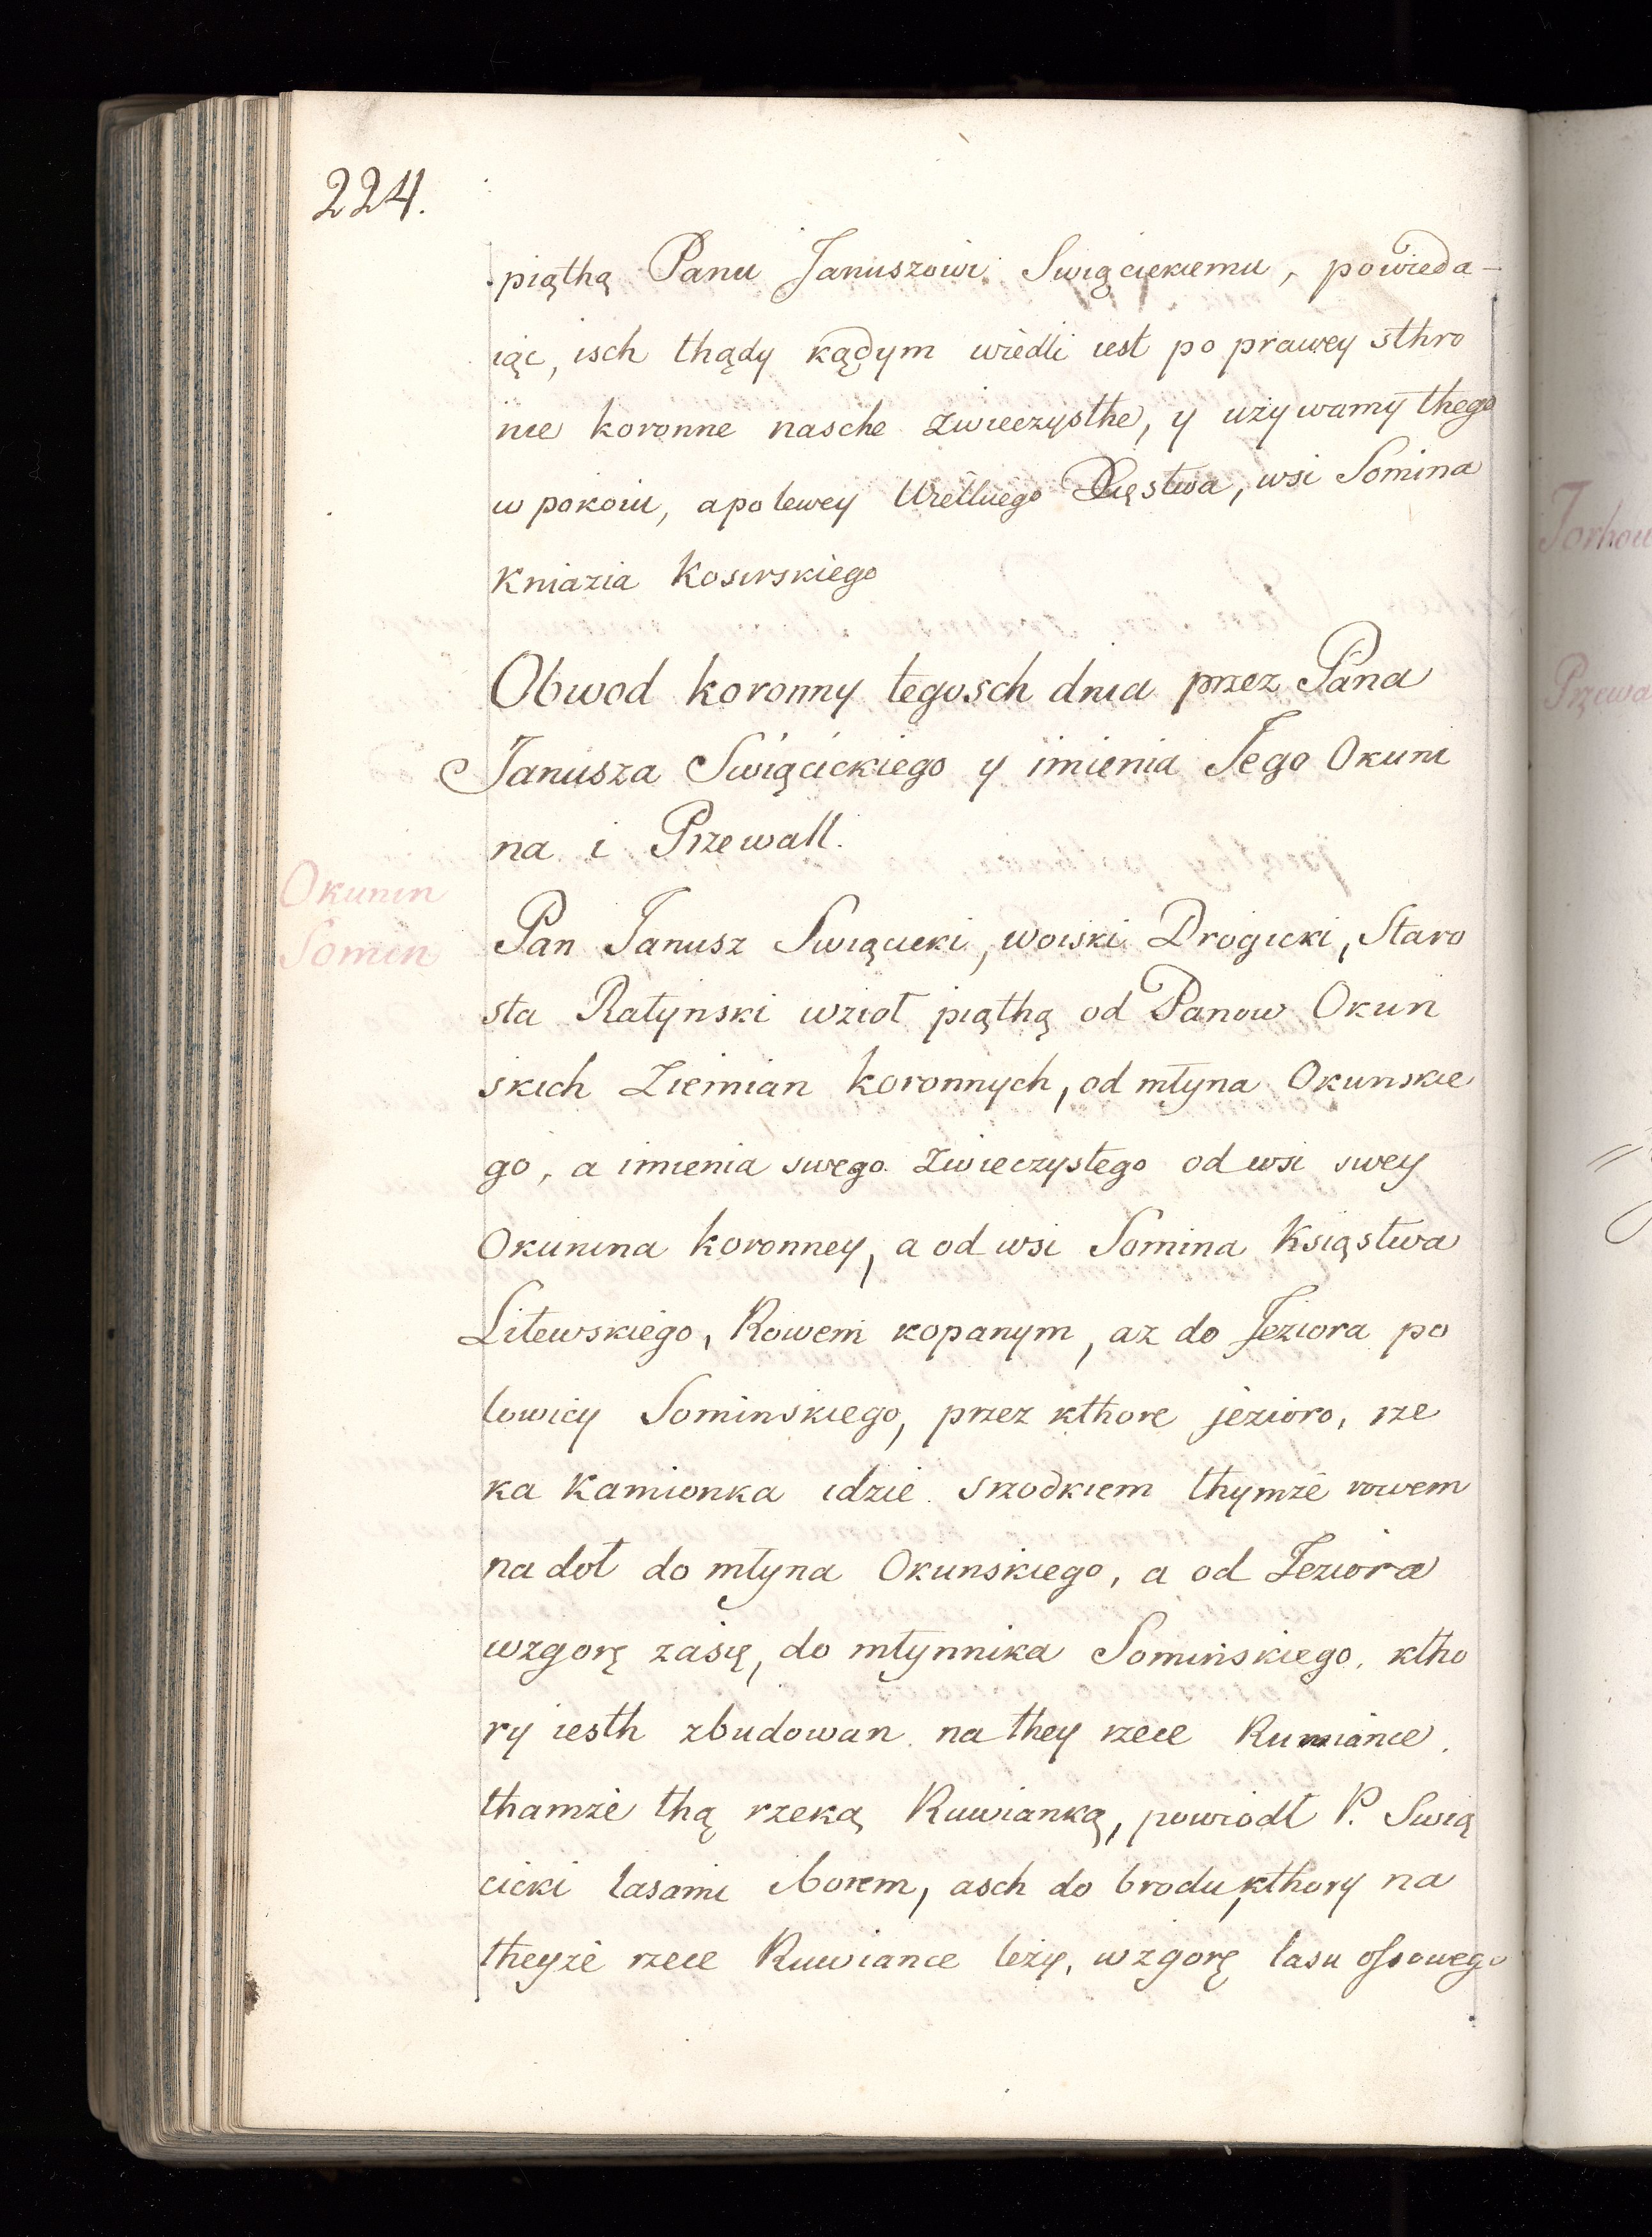 224.
piąthą Panu Januszowi Swiącickiemu, powieda-
iąc, isch thądy kądym wiedli iest po prawey sthro
nie koronne nasche zwieczysthe, y używamy thego
w pokoiu, a po lewey Wielkiego Xięstwa, wsi Somina
Kniazia Kosirskiego
Obwod koronny tegosch dnia przez Pana
Janusza Swiącickiego y imienia Jego Okuni
na i Przewall.
Okunin
Somin
Pan Janusz Swiącicki, woiski Drogicki, Staro
sta Ratynski wziol piąthą od Panow Okun
skich Ziemian koronnych, od młyna Okunskie
go, a imienia swego zwieczystego od wsi swey
Okunina koronney, a od wsi Somina Xsiąstwa
Litewskiego, Rowem kopanym, az do Jeziora po
lowicy Sominskiego, przez kthore jezioro, rze
ka Kamionka idzie srzodkiem thymze rowem
na dol do młyna Okunskiego, a od Jeziora
wzgorę zasię, do młynnika Sominskiego, ktho
ry iesth zbudowan na they rzece Ruwiance,
thamze thą rzeką Ruwianką, powiodł P. Swią
cicki lasami i borem, asch do brodu, kthory na
theyze rzece Ruwiance leży, wzgorę lasu ossowego
Torhow
Przewa